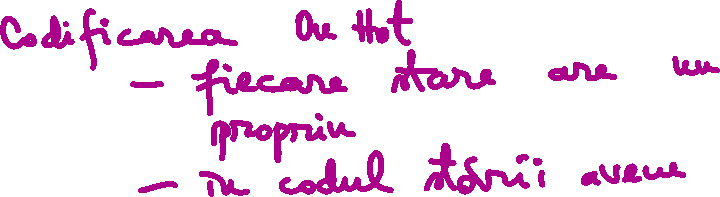 Codificarea One Hot
- fiecare stare are un
propriu
- în codul stării avem